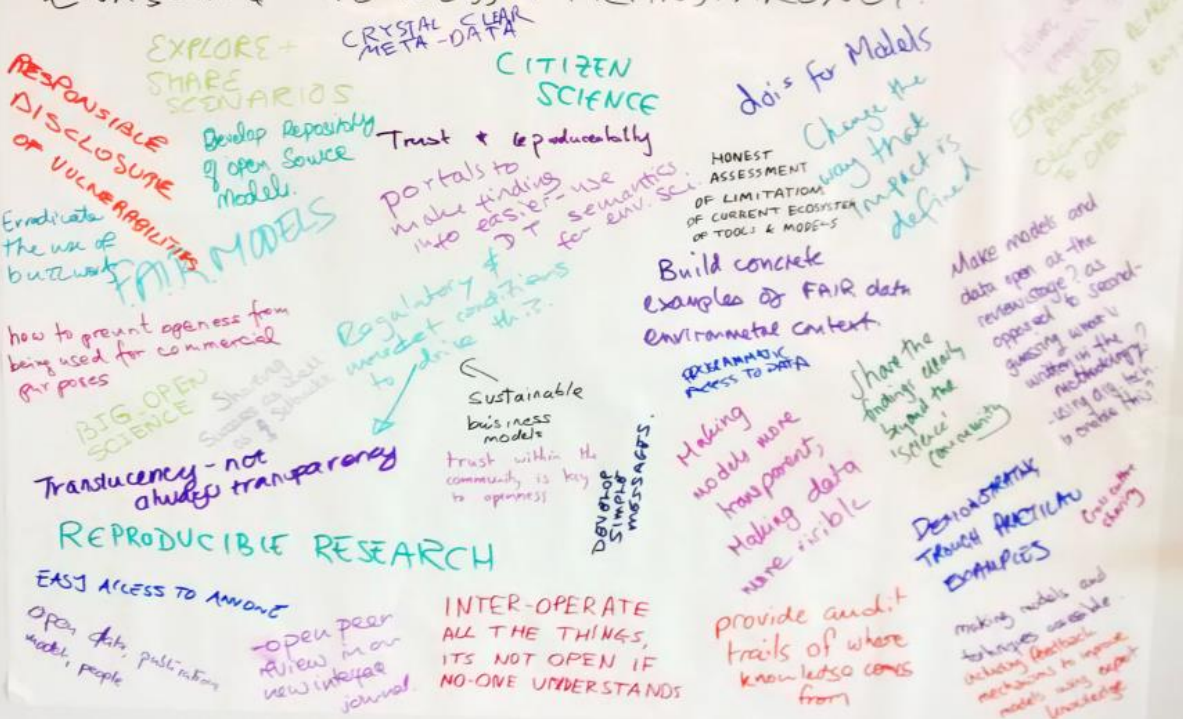 CRYSTAL CLEAR
META-DATA
EXPLORE +
SHARE
SCENARIOS
CITIZEN
SCIENCE
dois for Models
RESPONSIBLE
DISCLOSURE
OF VULNERABILITIES
Develop Repository
of open Source
Models.
Trust & reproducability
portals to
make finding
info easier-use
DT semantics
for env. sci.
HONEST
ASSESSMENT
OF LIMITATION
OF CURRENT ECOSYSTEM
OF TOOLS & MODELS
Change the
way that
impact is
defined
Erradicate
the use of
F.A.I.R. MODELS
Build concrete
examples of FAIR data
environmetal context.
Make models and
data open at the
review stage? as
opposed to second-
guessing what is
written in the
methodology?
- using any tech.
to enable this?
how to prevnt openess from
being used for commercial
purposes
Regulatory &
market conditions
to drive this.
BIG OPEN
SCIENCE
Sharing
Sustainable
business
models
PROGRAMMATIC
ACCESS TO DATA
Share the
findings clearly
beyond the
'science'
community
Translucency - not
always transparency
trust within the
community is key
to openness
DEVELOP
SIMPLE
MESSAGES.
Making
models more
transparent,
Making data
more visible
REPRODUCIBLE RESEARCH
DEMONSTRATING
TROUGH PRACTICAL
EXAMPLES
Cross
sharing
EASY ACCESS TO ANYONE
Open data, publication,
model, people
- open peer
review in our
new
journal.
INTER-OPERATE
ALL THE THINGS,
ITS NOT OPEN IF
NO-ONE UNDERSTANDS
provide audit
trails of where
knowledge comes
from
making models and
techniques accessible.
including feedback
mechanisms to improve
models using expert
knowledge